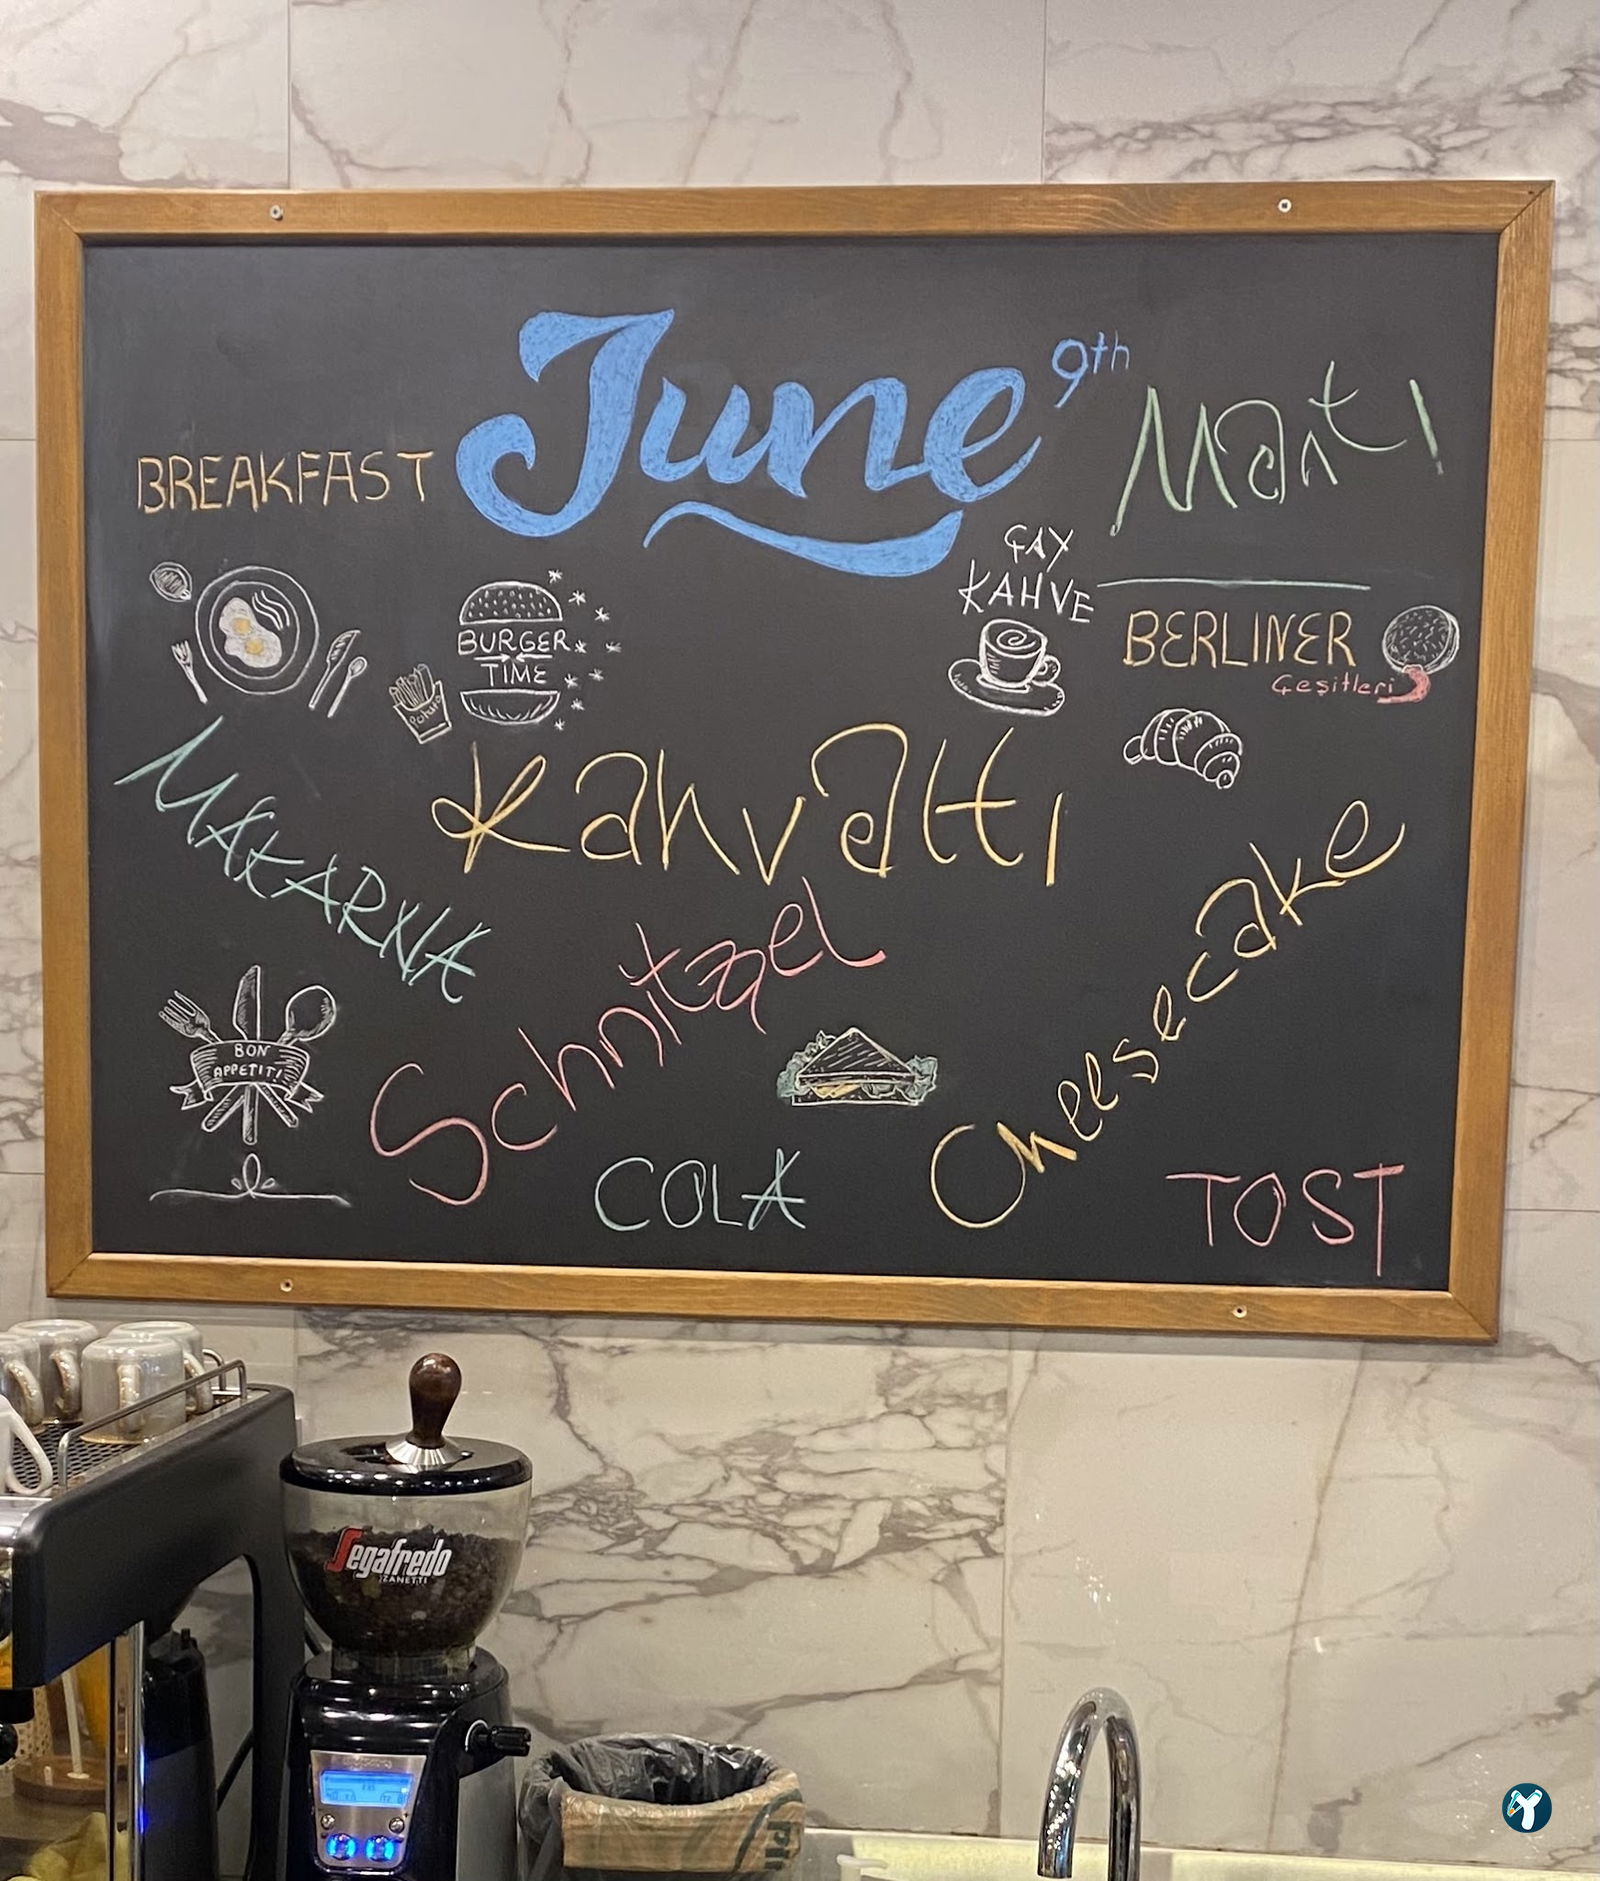 June 9th
BREAKFAST
Mantı
ÇAY
KAHVE
BURGER
TIME
Potato
BERLINER
Çeşitleri
Kahvaltı
MAKARNA
Schnitzel
Cheesecake
BON
APPETIT!
COLA
TOST
Segafredo
ZANETTI